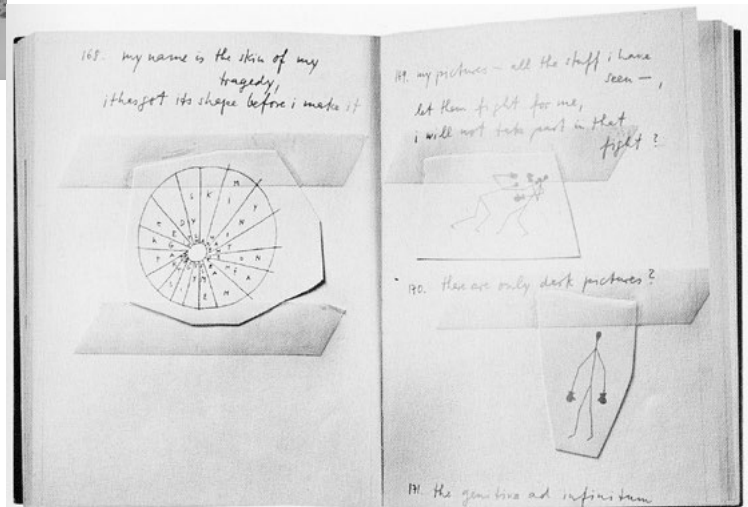 168. my name is the skin of my
tragedy,
it has got its shape before i make it
169. my pictures – all the stuff i have
seen –,
let them fight for me,
i will not take part in that
fight?
170. there are only dark pictures?
171. the genitive ad infinitum